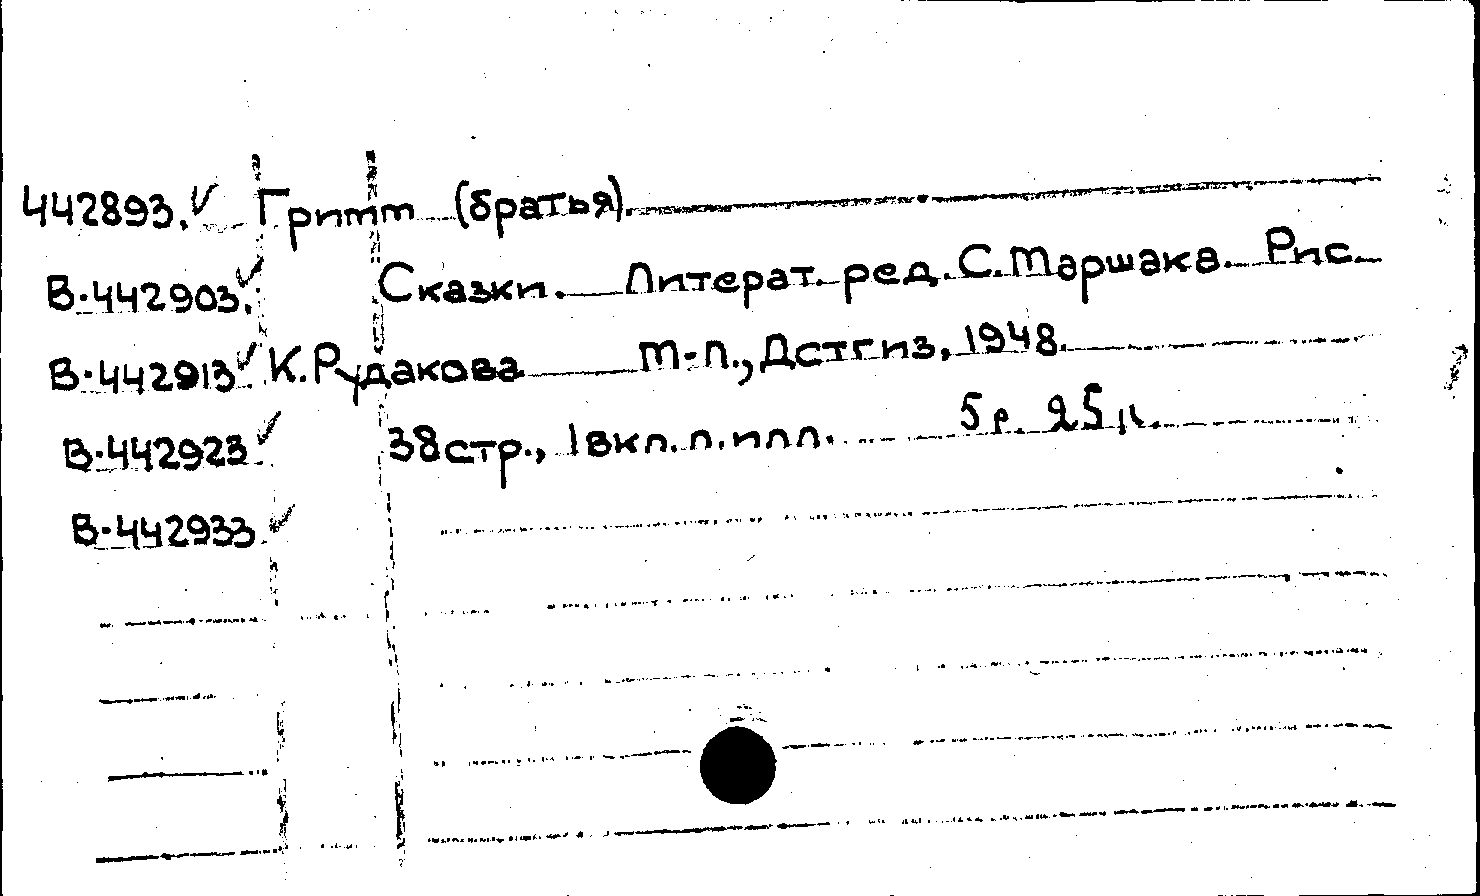 442893. Гримм (братья).
В-442903. Сказки. Литерат. ред. С. Маршака. Рис.
В-442913. К. Рудакова М-Л., Детгиз, 1948.
В-442923 38 стр., 1 вкл. л. илл. 5 р. 25 к.
В-442933